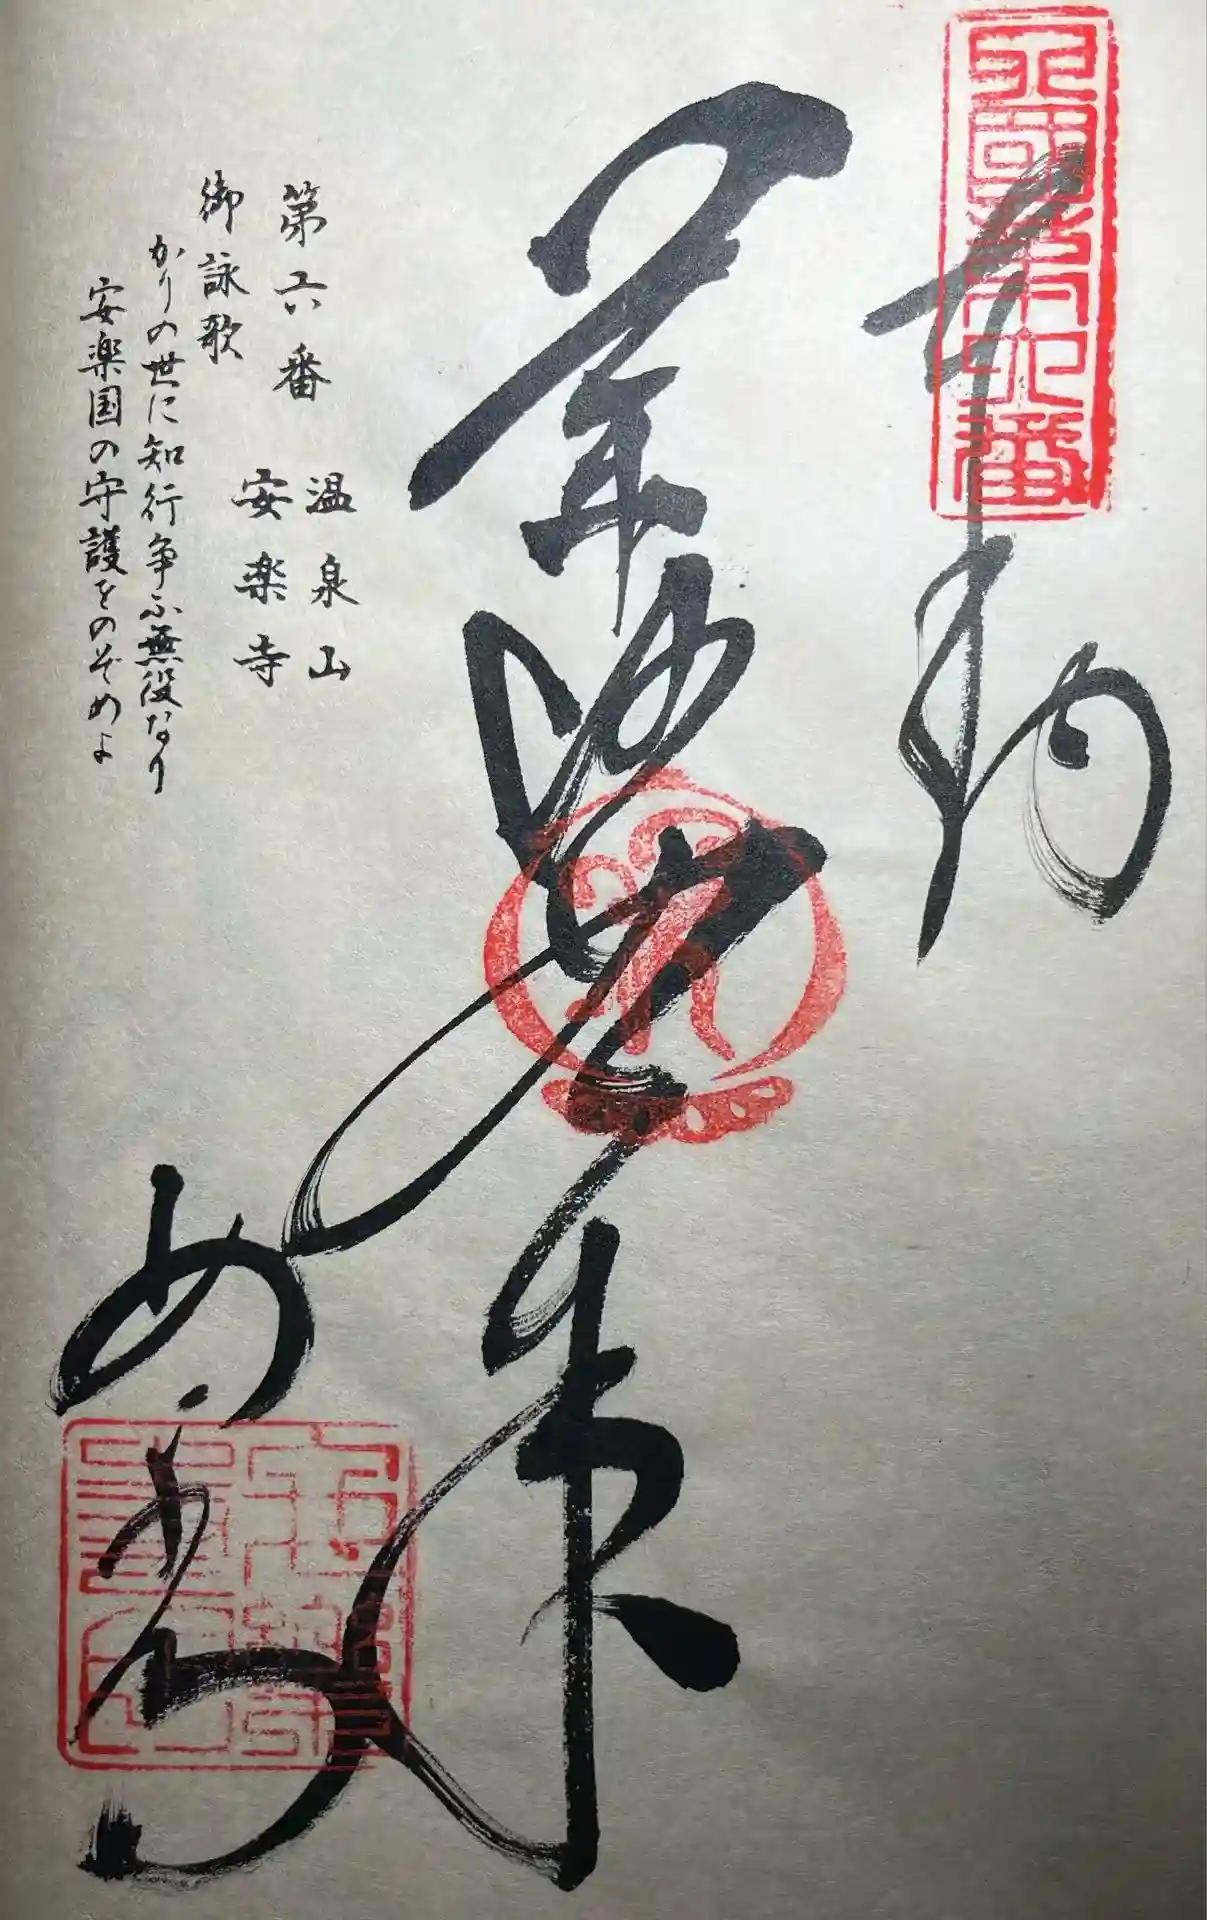 四國第六番
奉納
薬師如来
安楽寺
第六番
温泉山
安楽寺
御詠歌
かりの世に知行争ふ無役なり
安楽国の守護をのぞめよ